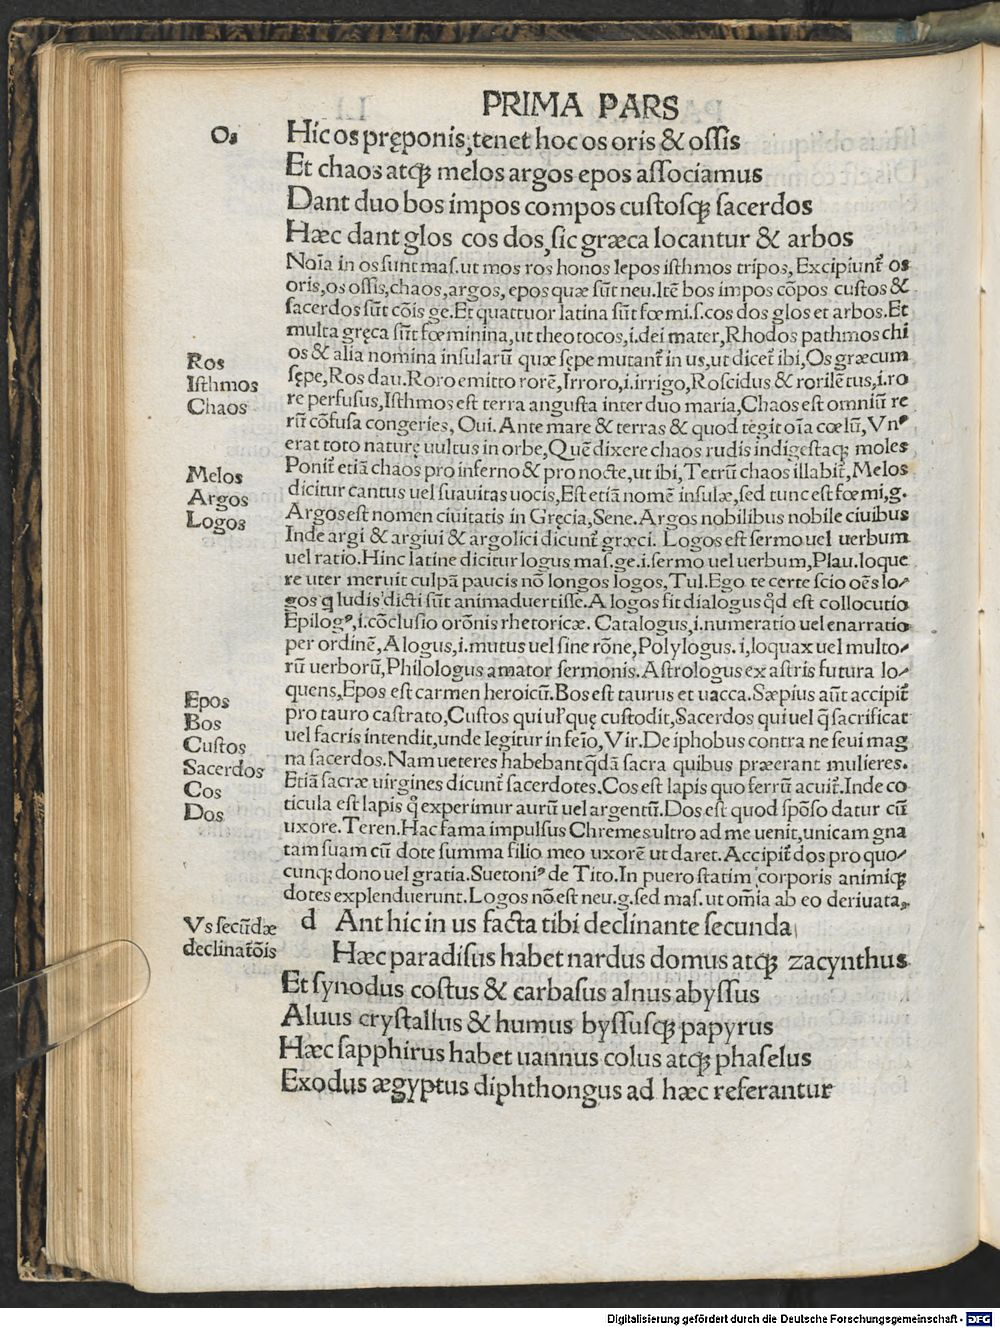 PRIMA PARS
Os
Hic os pręponis, tenet hoc os oris & ossis
Et chaos atqꝫ melos argos epos associamus
Dant duo bos impos compos custosqꝫ sacerdos
Hæc dant glos cos dos, sic græca locantur & arbos
Noīa in os sunt mas. ut mos ros honos lepos isthmos tripos, Excipiunt᷑ os
oris, os ossis, chaos, argos, epos quæ sūt neu. Itē bos impos cōpos custos &
sacerdos sūt cōis ge. Et quattuor latina sūt fœmi. s. cos dos glos et arbos. Et
multa gręca sūt fœminina, ut theotocos, i. dei mater, Rhodos pathmos chi
os & alia nomina insularū quæ sępe mutant᷑ in us, ut dicet᷑ ibi, Os græcum
sępe, Ros dau. Roro emitto rorē, Irroro, i. irrigo, Roscidus & rorilētus, i. ro
re perfusus, Isthmos est terra angusta inter duo maria, Chaos est omniū re
rū cōfusa congeries, Oui. Ante mare & terras & quod tegit oīa cœlū, Vnꝰ
erat toto naturę uultus in orbe, Quē dixere chaos rudis indigestaqꝫ moles
Ponit᷑ etiā chaos pro inferno & pro nocte, ut ibi, Tetrū chaos illabit᷑, Melos
dicitur cantus uel suauitas uocis, Est etiā nomē insulæ, sed tunc est fœmi, g.
Argos est nomen ciuitatis in Gręcia, Sene. Argos nobilibus nobile ciuibus
Inde argi & argiui & argolici dicunt᷑ græci. Logos est sermo uel uerbum
uel ratio. Hinc latine dicitur logus mas. ge. i. sermo uel uerbum, Plau. loque
re uter meruit culpā paucis nō longos logos, Tul. Ego te certe scio oēs lo⸗
gos q ludis dicti sūt animaduertisse. A logos fit dialogus qd̄ est collocutio
Epilogꝰ, i. cōclusio orōnis rhetoricæ. Catalogus, i. numeratio uel enarratio
per ordinē, Alogus, i. mutus uel sine rōne, Polylogus. i, loquax uel multo⸗
rū uerborū, Philologus amator sermonis. Astrologus ex astris futura lo⸗
quens, Epos est carmen heroicū. Bos est taurus et uacca. Sæpius aūt accipit᷑
pro tauro castrato, Custos qui ul' quę custodit, Sacerdos qui uel q̄ sacrificat
uel sacris intendit, unde legitur in feīo, Vir. De iphobus contra ne seui mag
na sacerdos. Nam ueteres habebant q̄dā sacra quibus præerant mulieres.
Etiā sacræ uirgines dicunt᷑ sacerdotes. Cos est lapis quo ferrū acuit᷑. Inde co
ticula est lapis q̄ experimur aurū uel argentū. Dos est quod spōso datur cū
uxore. Teren. Hac fama impulsus Chremes ultro ad me uenit, unicam gna
tam suam cū dote summa filio meo uxorē ut daret. Accipit᷑ dos pro quo⸗
cunqꝫ dono uel gratia. Suetoniꝰ de Tito. In puero statim corporis animiqꝫ
dotes explenduerunt. Logos nō est neu. g. sed mas. ut om̄ia ab eo deriuata.
Ros
Isthmos
Chaos
Melos
Argos
Logos
Epos
Bos
Custos
Sacerdos
Cos
Dos
Vs secūdæ
declinatōis
d Ant hic in us facta tibi declinante secunda
Hæc paradisus habet nardus domus atqꝫ zacynthus
Et synodus costus & carbasus alnus abyssus
Aluus crystallus & humus byssusqꝫ papyrus
Hæc sapphirus habet uannus colus atqꝫ phaselus
Exodus ægyptus diphthongus ad hæc referantur
Digitalisierung gefördert durch die Deutsche Forschungsgemeinschaft - DFG